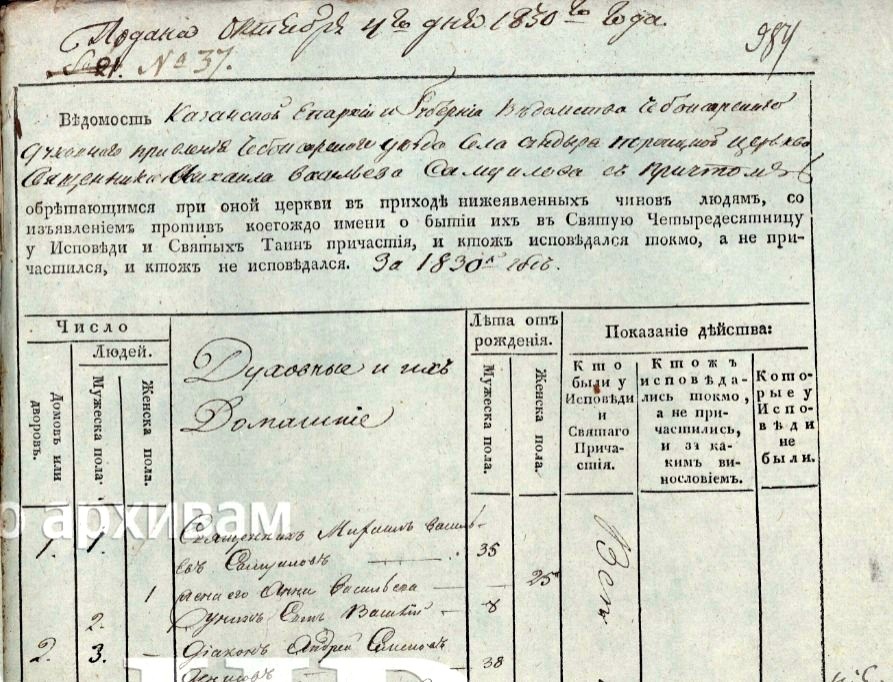 Подана Октября 4го дня 1830го года.
984
21. № 37.
Вѣдомость Казанской Епархіи и Губерніи Вѣдомства Чебоксарскаго
духовнаго правленія Чебоксарскаго уѣзда села троицкой церкви
Священника Михаила Васильева Самуилова съ причтомъ
обрѣтающимся при оной церкви въ приходѣ нижеявленныхъ чиновъ людямъ, со
изъявленіемъ противъ коегождо имени о бытіи ихъ въ Святую Четыредесятницу
у Исповѣди и Святыхъ Таинъ причастія, и ктожъ исповѣдался токмо, а не при-
частился, и ктожъ не исповѣдался. За 1830й годъ.
Число
Людей.
Домовъ или дворовъ.
Мужеска пола.
Женска пола.
Духовные и ихъ
Домашніе
Лѣта отъ
рожденія.
Мужеска пола.
Женска пола.
Показаніе дѣйства:
Кто
были у
Исповѣди
и
Святаго
Прича-
стія.
Ктожъ
исповѣда-
лись токмо,
а не при-
частились,
и за ка-
кимъ ви-
нословіемъ.
Кото-
рые у
Испо-
вѣди
не
были.
о архивам
1. 1. Священникъ Михаилъ Василь-
евъ Самуиловъ 35
1 жена его Анна Васильева 25
2. Сынъ Василій 8
2. 3. Діаконъ Андрей
38